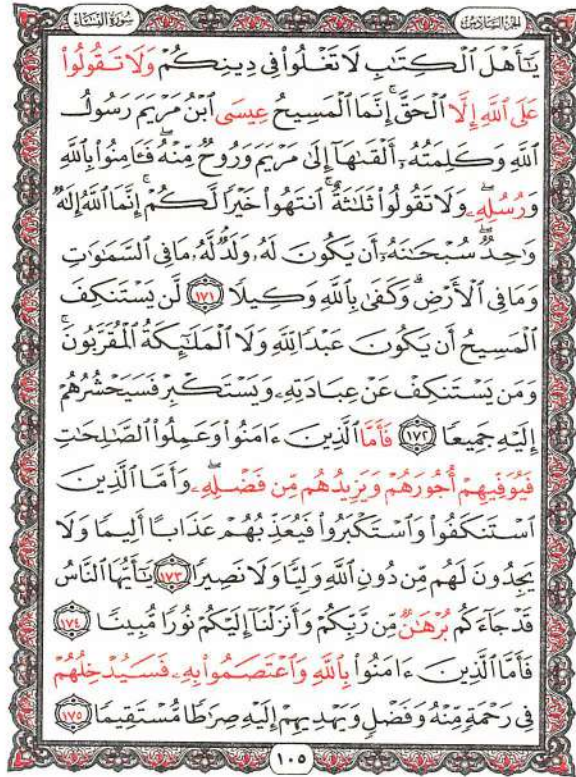 سُورَةُ النِّسَاءِ
الجزء السادس
يَٰٓأَهْلَ ٱلْكِتَٰبِ لَا تَغْلُوا۟ فِى دِينِكُمْ وَلَا تَقُولُوا۟
عَلَى ٱللَّهِ إِلَّا ٱلْحَقَّ ۚ إِنَّمَا ٱلْمَسِيحُ عِيسَى ٱبْنُ مَرْيَمَ رَسُولُ
ٱللَّهِ وَكَلِمَتُهُۥٓ أَلْقَىٰهَآ إِلَىٰ مَرْيَمَ وَرُوحٌ مِّنْهُ ۖ فَـَٔامِنُوا۟ بِٱللَّهِ
وَرُسُلِهِۦ ۖ وَلَا تَقُولُوا۟ ثَلَٰثَةٌ ۚ ٱنتَهُوا۟ خَيْرًا لَّكُمْ ۚ إِنَّمَا ٱللَّهُ إِلَٰهٌ
وَٰحِدٌ ۖ سُبْحَٰنَهُۥٓ أَن يَكُونَ لَهُۥ وَلَدٌ ۘ لَّهُۥ مَا فِى ٱلسَّمَٰوَٰتِ
وَمَا فِى ٱلْأَرْضِ ۗ وَكَفَىٰ بِٱللَّهِ وَكِيلًا ١٧١ لَّن يَسْتَنكِفَ
ٱلْمَسِيحُ أَن يَكُونَ عَبْدًا لِّلَّهِ وَلَا ٱلْمَلَٰٓئِكَةُ ٱلْمُقَرَّبُونَ ۚ
وَمَن يَسْتَنكِفْ عَنْ عِبَادَتِهِۦ وَيَسْتَكْبِرْ فَسَيَحْشُرُهُمْ
إِلَيْهِ جَمِيعًا ١٧٢ فَأَمَّا ٱلَّذِينَ ءَامَنُوا۟ وَعَمِلُوا۟ ٱلصَّٰلِحَٰتِ
فَيُوَفِّيهِمْ أُجُورَهُمْ وَيَزِيدُهُم مِّن فَضْلِهِۦ ۖ وَأَمَّا ٱلَّذِينَ
ٱسْتَنكَفُوا۟ وَٱسْتَكْبَرُوا۟ فَيُعَذِّبُهُمْ عَذَابًا أَلِيمًا وَلَا
يَجِدُونَ لَهُم مِّن دُونِ ٱللَّهِ وَلِيًّا وَلَا نَصِيرًا ١٧٣ يَٰٓأَيُّهَا ٱلنَّاسُ
قَدْ جَآءَكُم بُرْهَٰنٌ مِّن رَّبِّكُمْ وَأَنزَلْنَآ إِلَيْكُمْ نُورًا مُّبِينًا ١٧٤
فَأَمَّا ٱلَّذِينَ ءَامَنُوا۟ بِٱللَّهِ وَٱعْتَصَمُوا۟ بِهِۦ فَسَيُدْخِلُهُمْ
فِى رَحْمَةٍ مِّنْهُ وَفَضْلٍ وَيَهْدِيهِمْ إِلَيْهِ صِرَٰطًا مُّسْتَقِيمًا ١٧٥
١٠٥